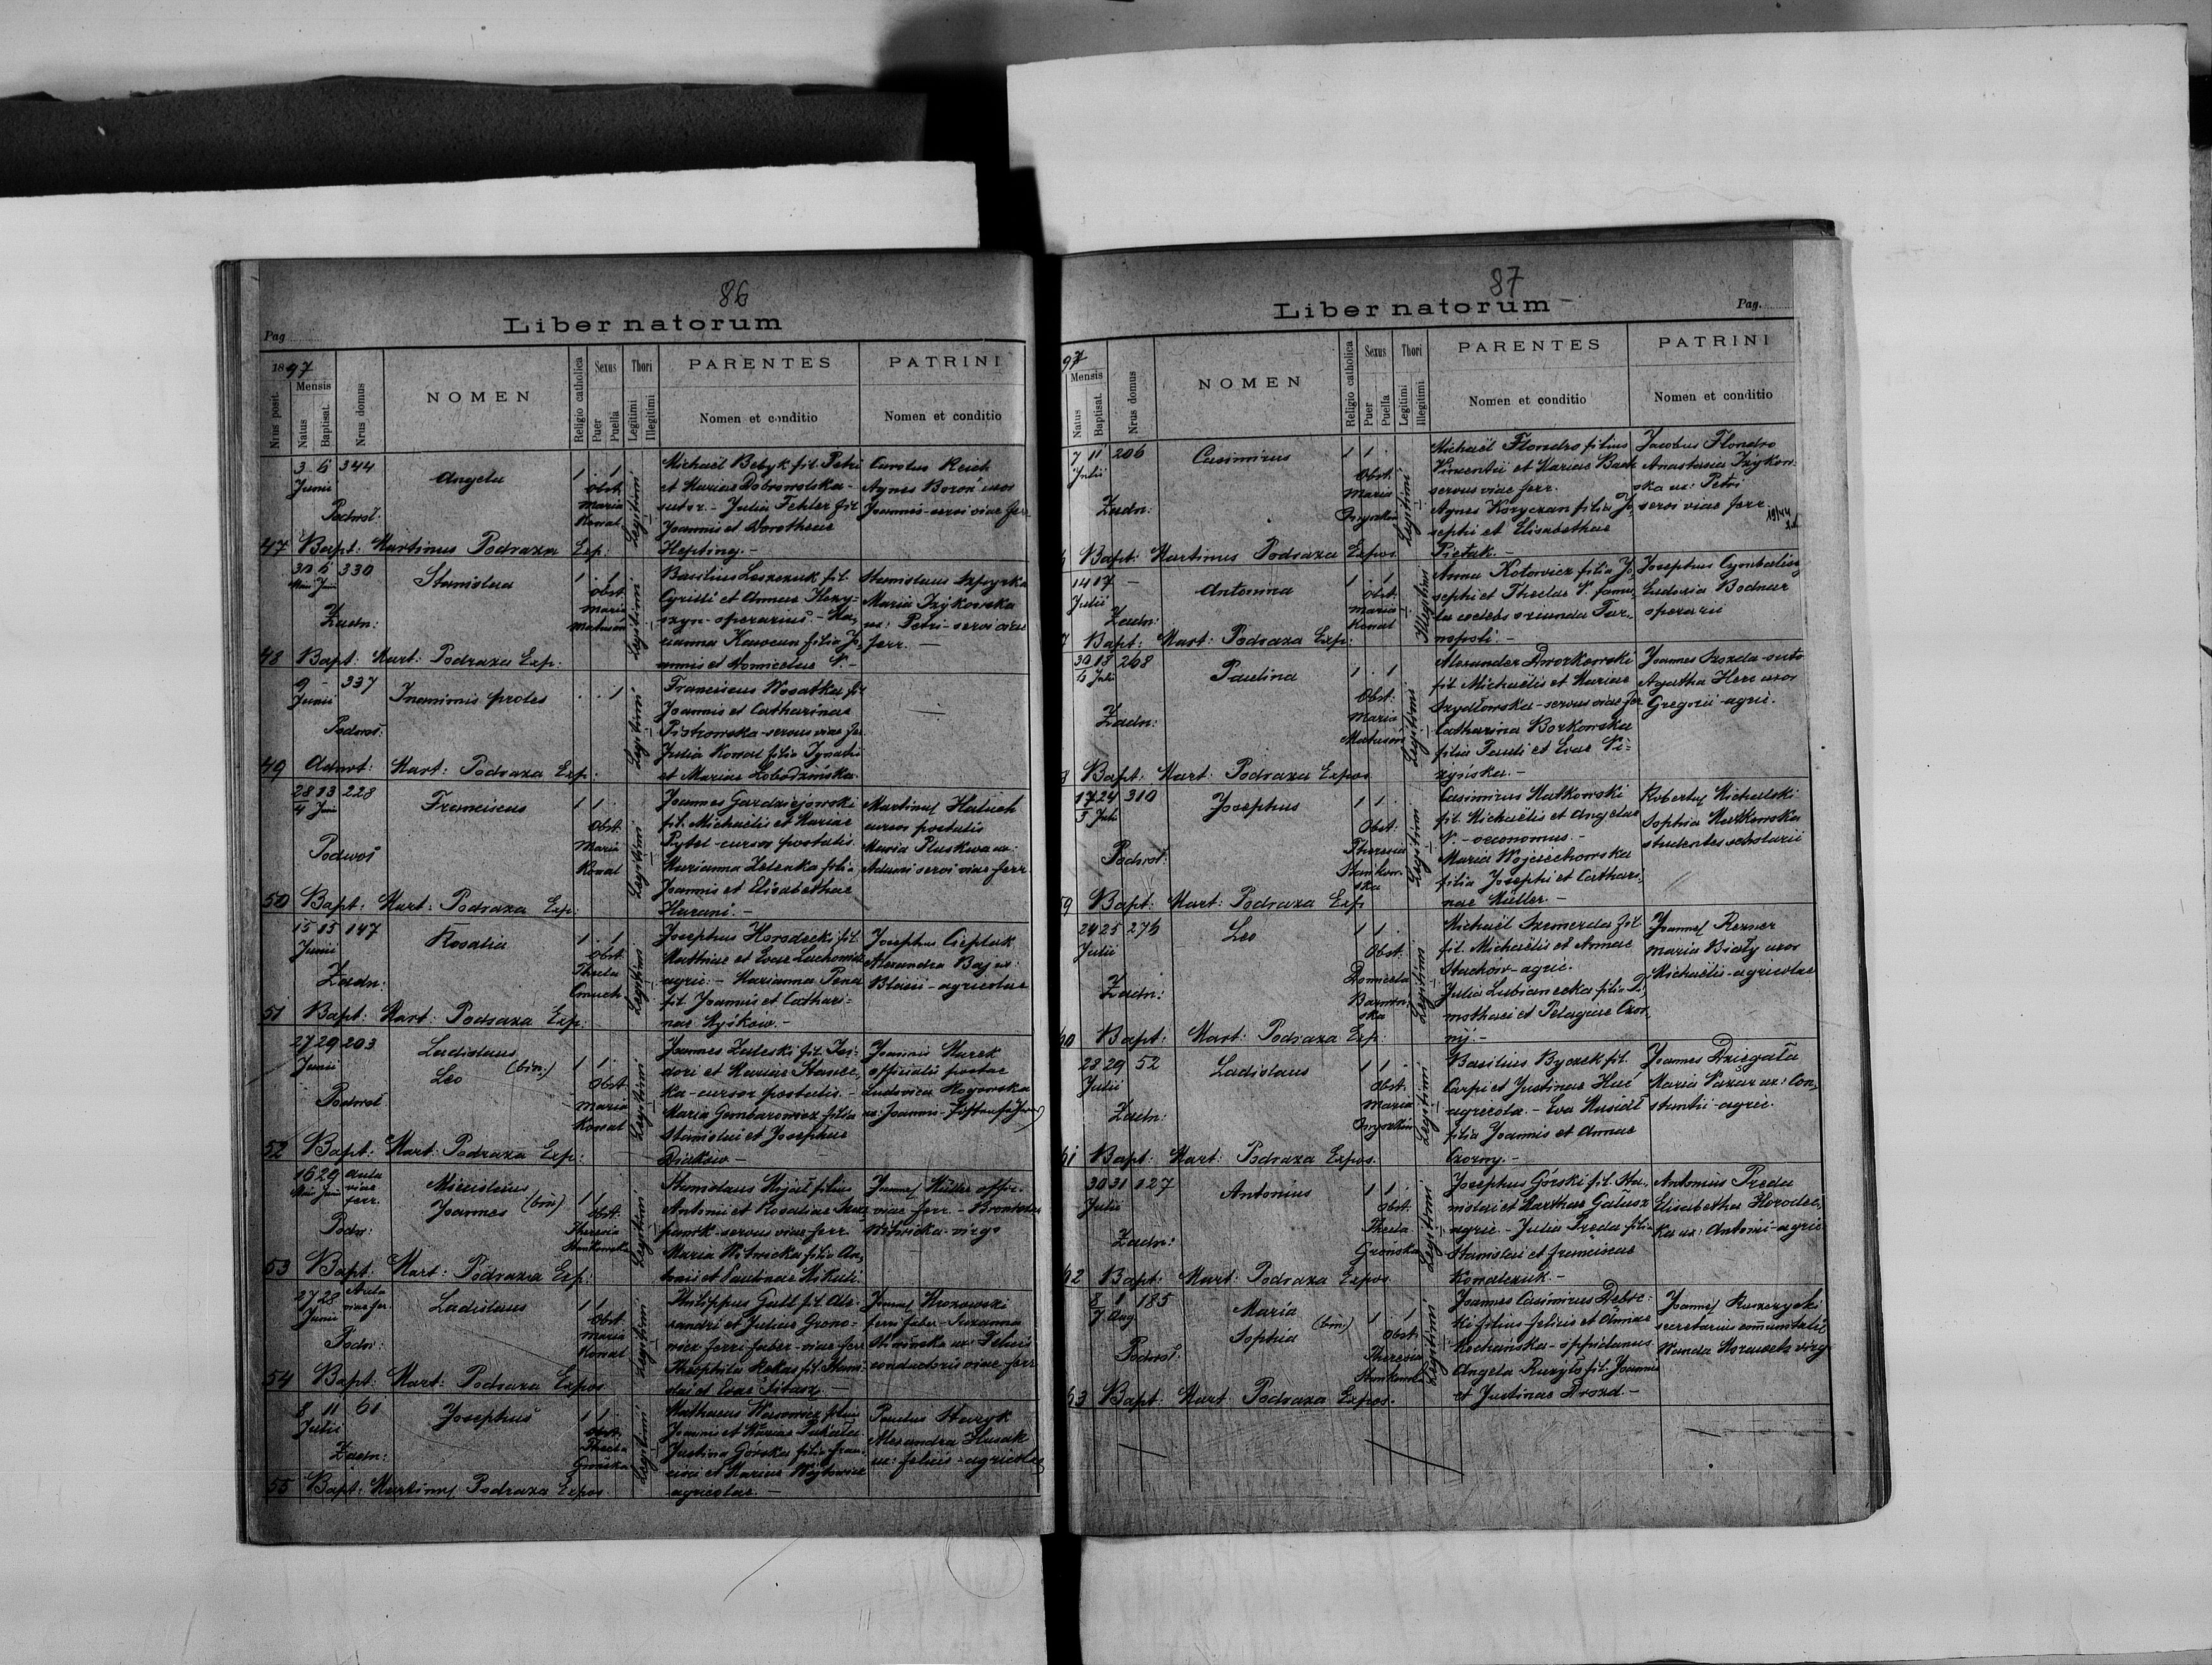 86
Liber natorum
Pag
1897
Nrus posit.
Mensis
Natus
Baptisat.
Nrus domus
NOMEN
Religio catholica
Sexus
Puer
Puella
Thori
Legitimi
Illegitimi
PARENTES
Nomen et conditio
PATRINI
Nomen et conditio
3 6 344
Junii
Angela
1 . 1
Obst.
Maria
Konal
Legitimi
Podwoł:
Michaël Bebyk fil. Petri
et Mariae Dobrowolska -
sutor. - Julia Fehler fil
Joannis et Dorotheae
Hepting. -
Carolus Reich
Agnes Boroń uxor
Joannis - servi viae ferr.
47 Bapt: Martinus Podraza Exp:
30 6 330
Maii Junii
Stanislaa
1 . 1
Obst.
Maria
Legitimi
Zadn:
Basilius Leszczuk fil.
Cyrilli et Annae
operarius -
filia Jo,
annis et Domicelae N. -
Stanislaus
Maria Izykowska
ux: Petri - servi viae
ferr. -
48 Bapt: Mart: Podraza Exp:
9 - 337
Junii
Inanimis proles
. . 1
Legitimi
Podwoł:
Franciscus Wosatka fil
Joannis et Catharinae
Piotrowska - servus viae fer.
Julia Kowal filia Ignatii
et Mariae Łobodzińska
49 Mart: Podraza Exp.
28 13 228
4 Juni
Franciscus
1 1 .
Obst.
Maria
Konal
Legitimi
Podwoł
Joannes Gardziejowski
fil. Michaëlis et Mariae
Pytel - cursor postalis
Marianna Zelenka filia
Joannis et Elisabethae
Harani. -
Martinus Haluch
cursor postalis
Maria Pluskwa ux:
Adami servi viae ferr
50 Bapt: Mart: Podraza Exp:
15 15 147
Junii
Rosalia
1 . 1
Obst.
Thecla
Legitimi
Zadn:
Josephus Horodecki fil.
Mathiae et Evae
agric: - Marianna
fil. Joannis et Cathari=
nae Myśków. -
Josephus Cieplak
Alexandra Baj ux:
Blasii - agricolae
51 Bapt: Mart: Podraza Exp:
27 29 203
Junii
Ladislaus
Leo (bin.)
1 1 .
Obst.
Maria
Konal
Legitimi
Podwoł
Joannes Zaleski fil. Isi=
dori et Mariae
ka - cursor postalis. -
Maria Gembarowicz filia
Stanislai et Josephae
Diaków -
Joannes Marek
officialis postae
Ludovica Rogowska
ux: Joannis -
52 Bapt: Mart: Podraza Exp:
16 29
Maii Junii
aula
viae
ferr.
Miecislaus
Joannes (bin)
1 1
Obst.
Theresia
Stankowska
Legitimi
Podw:
Stanislaus filius
Antonii et Rosaliae
servus viae ferr.
Maria Witwicka filia An,
tonii et Paulinae Mikuli.
Joannes Müller offic.
viae ferr. -
Witwicka - virgo
53 Bapt: Mart: Podraza Exp:
27 28
Junii
Aula
viae fer.
Ladislaus
1 1
Obst.
Maria
Konal
Legitimi
Podw:
Philippus Gull fil. Ale=
xandri et Juliae Grono=
wicz ferri faber - viae ferr
Theophila Rekas fil. Stani=
slai et Evae
Joannes
ferri faber - Susanna
conductoris viae ferr
54 Bapt: Mart: Podraza Expos
8 11 61
Julii
Josephus
1 1 .
Obst.
Thecla
Legitimi
Zadn:
Mathaeus filius
Joannis et Mariae
Justina Górska filia Fran=
cisci et Mariae Wójtowicz
agricolae. -
Paulus Staryk
Alexandra Husak
ux: Felicis - agricolae
55 Bapt: Martinus Podraza Expos
87
Liber natorum
Pag.
97
Mensis
Natus
Baptisat.
Nrus domus
NOMEN
Religio catholica
Sexus
Puer
Puella
Thori
Legitimi
Illegitimi
PARENTES
Nomen et conditio
PATRINI
Nomen et conditio
7 11 206
Julii
Casimirus
1 1 .
Obst.
Maria
Legitimi
Zadn:
Michaël Flondro filius
Vincentii et Mariae
servus viae ferr.
Agnes Koryczan filia Jo,
sephi et Elisabethae
Pietak. -
Jacobus Flondro
Anastasia Izykow=
ska ux: Petri
servi viae ferr
Bapt: Martinus Podraza Expos
14 17 -
Julii
Antonina
1 . 1
Obst.
Maria
Konal
Illegitimi
Zadn:
Anna Kotowicz filia Jo,
sephi et Theclae N. famu,
la coelebs oriunda Tar=
nopoli. -
Josephus
Ludovica Bodnar
operarii
7 Bapt: Mart: Podraza Exp:
30 18 268
6 Juli
Paulina
1 . 1
Obst:
Maria
Legitimi
Zadn:
Alexander Dworkowski
fil. Michaëlis et Mariae
Szydłowska - servus viae fer
Catharina Borkowska
filia Pauli et Evae Ni=
zyńska. -
Joannes
Agatha Herc uxor
Gregorii - agric.
8 Bapt: Mart: Podraza Expos
17 24 310
5 Juli
Josephus
1 1 .
Obst:
Theresia
Stankow=
ska
Legitimi
Podwoł:
Casimirus Malkowski
fil. Michaëlis et Angelae
N. - oeconomus. -
Maria Wojciechowska
filia Josephi et Cathari,
nae Müller. -
Robertus Michalski
Sophia Malkowska
studentes scholarii
59 Bapt: Mart: Podraza Exp
24 25 276
Julii
Leo
1 1 .
Obst:
Domicela
Legitimi
Zadn:
Michaël Szemerda fil.
fil. Michaëlis et Annae
Stachów - agric.
Julia Lubianecka filia Ti,
mothaei et Pelagiae Czor,
nij. -
Joannes Rezner
Maria Biały uxor
Michaëlis - agricolae
60 Bapt: Mart: Podraza Exp:
28 29 52
Julii
Ladislaus
1 1 .
Obst.
Maria
Legitimi
Zadn:
Basilius Byczek fil.
Carpi et Justinae
agricola. - Eva Musiał
filia Joannis et Annae
Czorny. -
Joannes Dziegała
Maria Vazur ux: Con,
stantii - agric.
61 Bapt: Mart: Podraza Expos.
30 31 127
Julii
Antonius
1 1 .
Obst.
Thecla
Grońska
Legitimi
Zadn:
Josephus Górski fil. Sta=
nislai et Marthae Gałusz
agric - Julia Preda filia
Stanislai et Franciscae
Kowalczuk. -
Antonius Preda
Elisabetha Horodec,
ka ux: Antonii - agric.
62 Bapt: Mart: Podraza Expos.
8 1 185
7 Aug
Maria
Sophia (bin)
1 . 1
Obst.
Theresia
Stankowska
Legitimi
Podwoł:
Joannes Casimirus Debic=
ki filius Felicis et Annae
Kochańska - oppidanus
Angela Ruzyło fil. Joannis
et Justinae Drozd -
Joannes Ruszczycki
secretarius communitatis
Wanda Horawetz virgo
63 Bapt: Mart Podraza Expos.